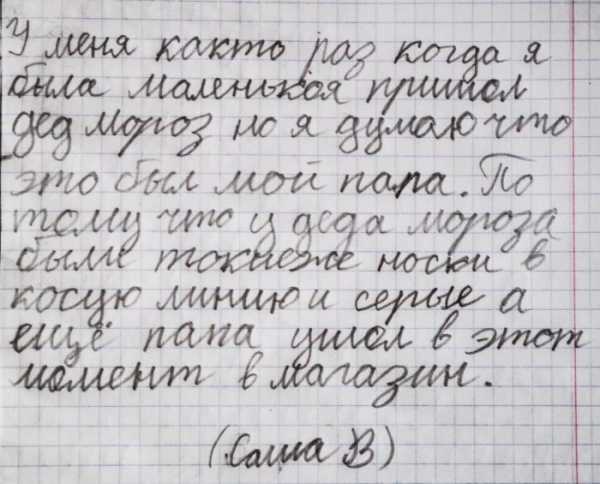 У меня както раз когда я
была маленькая пришол
дед мороз но я думаю что
это был мой папа. По
тому что у деда мороза
были токиеже носки в
косую линию и серые а
ещё папа ушол в этот
момент в магазин.
(Саша В)